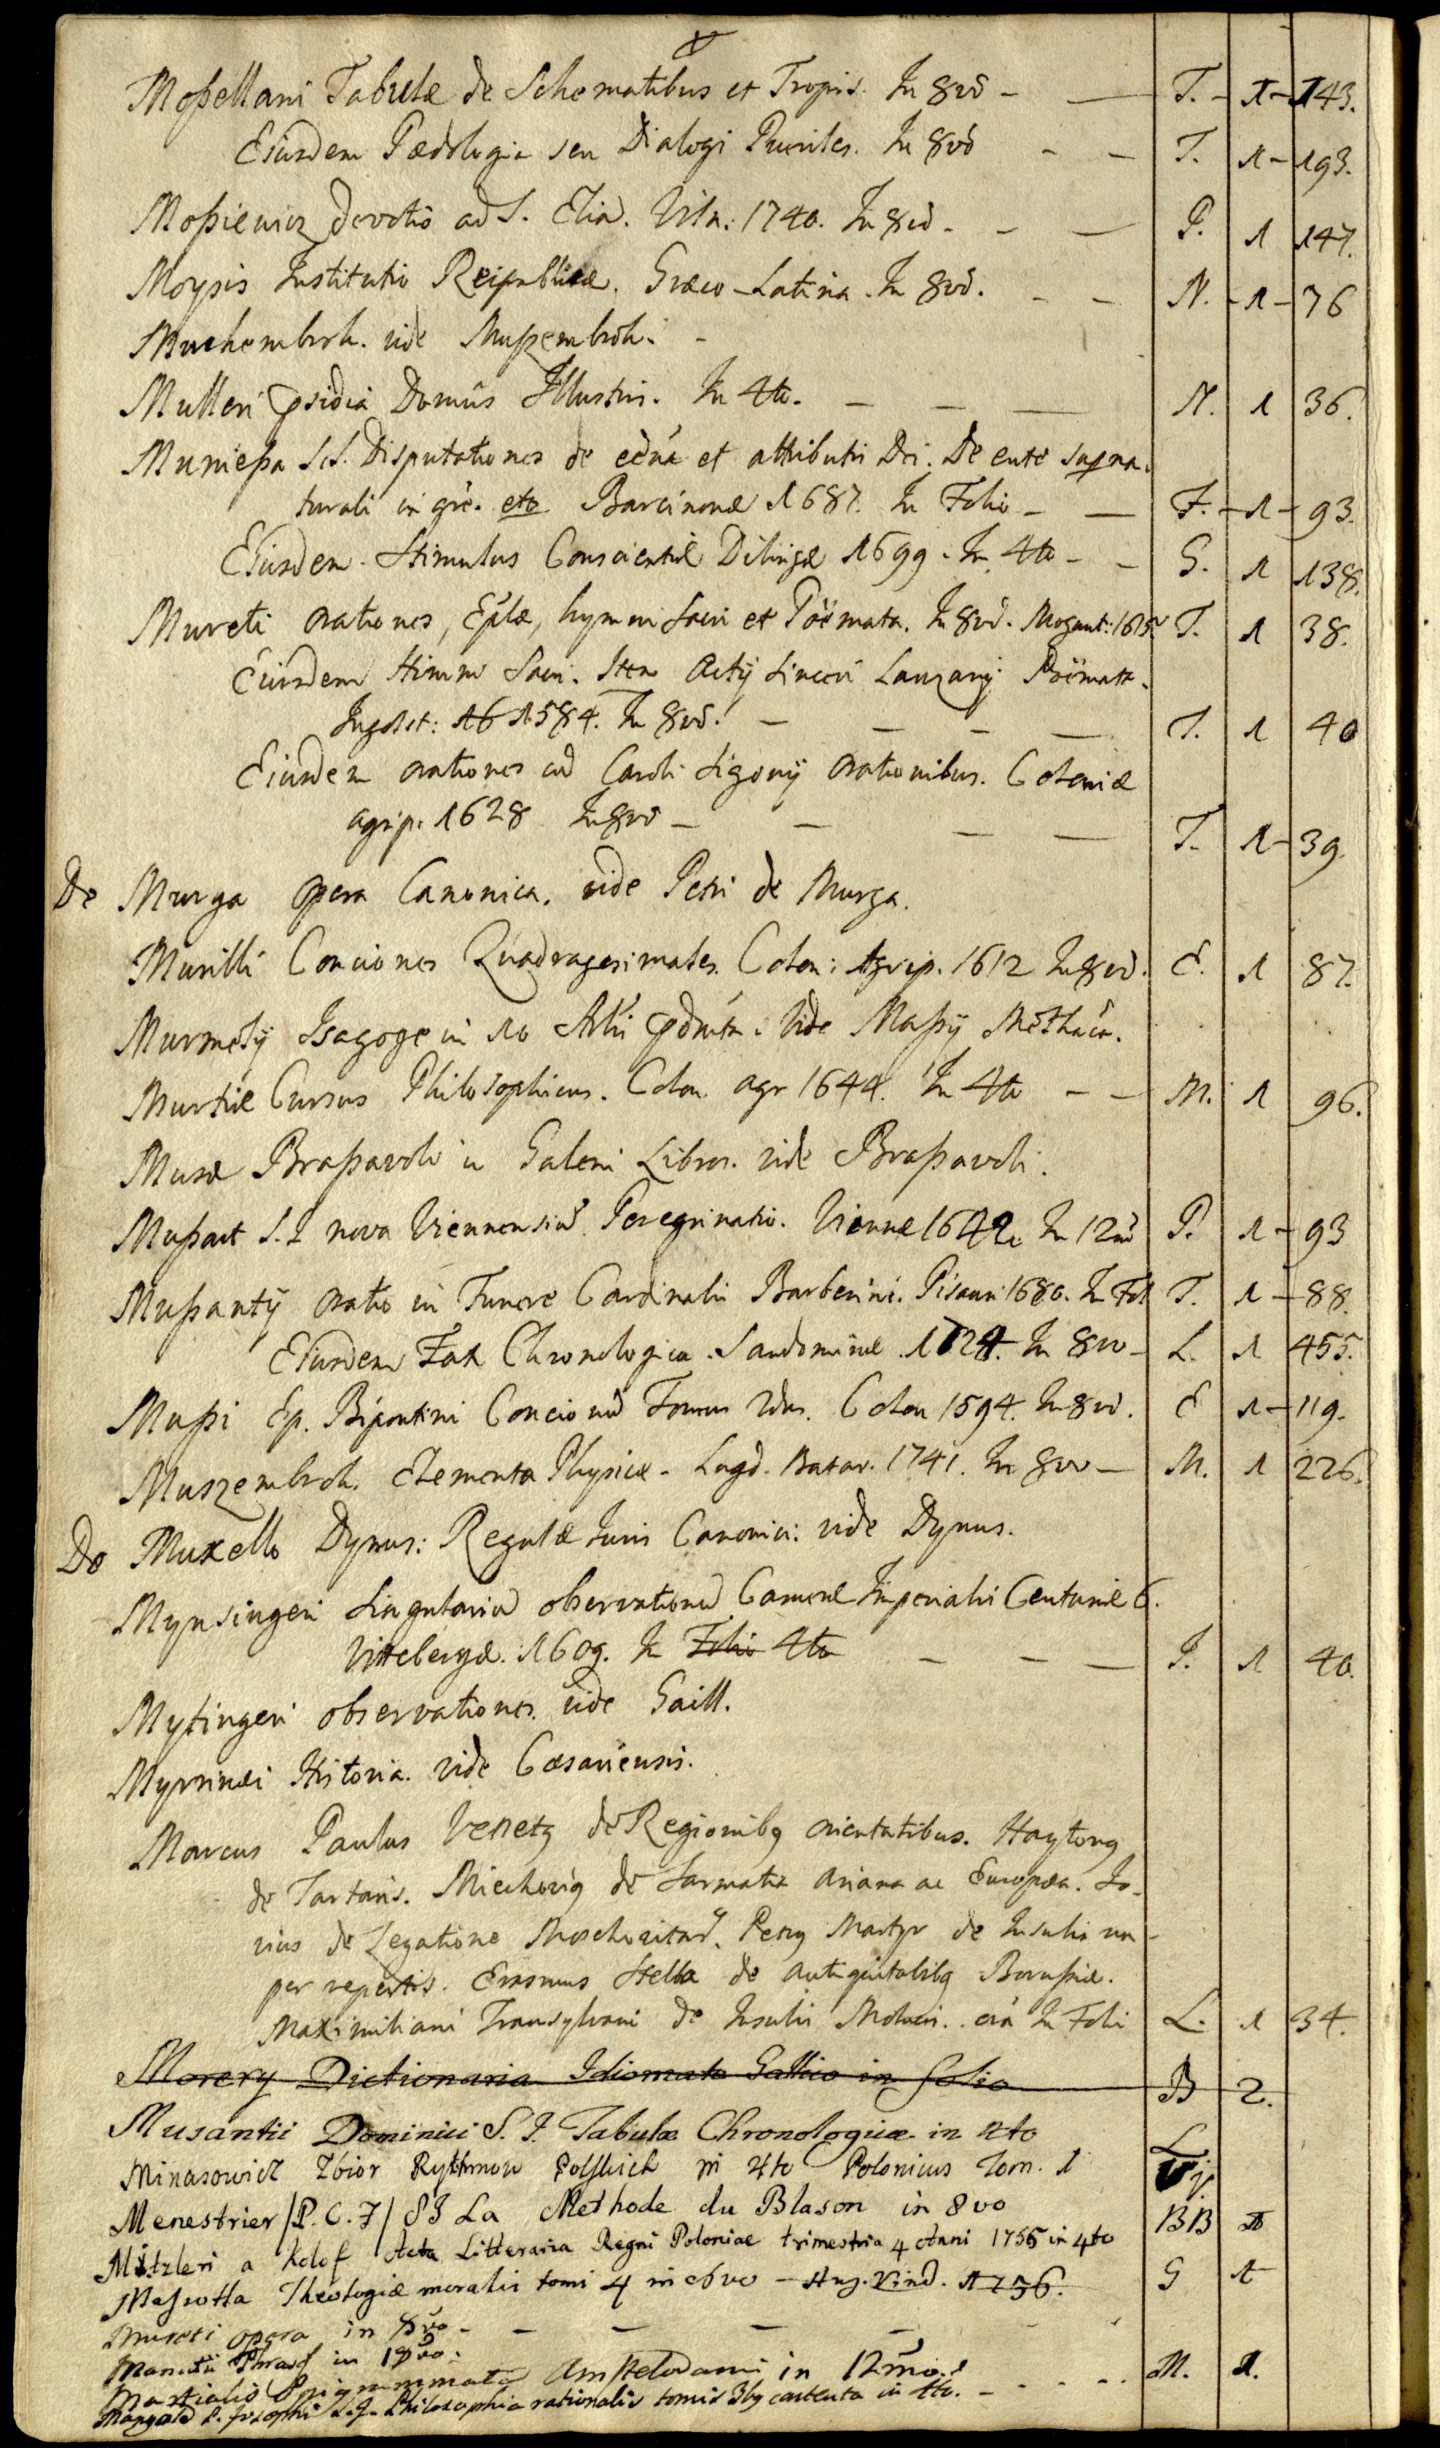 Moſsellani Tabulæ de Schematibus et Tropis. In 8vo - — T. - 1 - 143.
Eiusdem Pædologia seu Dialogi Pueriles. In 8vo - - T. 1 - 193.
Moſsiewicz devotio ad S. Eliā. Viln: 1740. In 8vo - - — P. 1 147.
Moysis Institutio Reipublicæ. Græco-Latina. In 8vo. - - N. - 1 - 76
Muchembroh. vide Muszembroh. -
Mulleri psidia Domûs Illustris. In 4to. — — — N. 1 36.
Munieſsa S.J. Disputationes de eēnā et attributis Dei. De ente supna-
turali in gre. etc Barcinonæ 1687. In Folio - — F. - 1 - 93.
Eiusdem Stimulus Conscientiæ Dilingæ 1699. In 4to - - G. 1 138.
Mureti orationes, Eplæ, hymni Sacri et Poëmata. In 8vo. Mogunt: 1615 T. 1 38.
Eiusdem Himni Sacri. Item Actij Sinceri Poëmata.
Ingolst: 16 1584. In 8vo. — — - — T. 1 40
Eiusdem orationes cū Caroli Sigonij orationibus. Coloniæ
agrip. 1628 In 8vo - — — — T. 1 - 39.
De Murga opera Canonica. vide Petri de Murga.
Murilli Conciones Quadragesimales. Colon: Agrip. 1612 In 8vo. E. 1 87.
Murmelij Isagoge in 10 Artis pdmta. Vide Maſsij
Murtiæ Cursus Philosophicus. Colon. agr 1644. In 4to - - M. 1 96.
Musæ Braſsavoli in Galeni Libros. vide Braſsavoli.
Muſsart S.J nova Viennensiū Peregrinatio. Viennæ 1642. In 12mo P. 1 - 93
Muſsantij oratio in Funere Cardinalis Barberini. Pisauri 1680. In Fol T. 1 - 88.
Eiusdem Fax Chronologica. Sandomiriæ 1724. In 8vo - L. 1 455.
Muſsi Ep. Bipontini Concionū Tomus 2dus. Colon 1594. In 8vo. E 1 - 119.
Muszembroh. Elementa Physicæ - Lugd. Batav. 1741. In 8vo - M. 1 226.
De Muxello Dynus: Regulæ Juris Canonici: vide Dynus.
Mynsingeri Singulariū observationū Cameræ Imperialis Centuriæ 6.
Vittebergæ. 1609. In Folio 4to — - — J. 1 40.
Mytingeri observationes. vide Gaill.
Myrsinæi Historia. vide Cæsariensis.
Marcus Paulus Venetq de Regionibq orientalibus. Haytonq
de Tartaris. Miechoviq de Sarmatia Asiana ac Europæa. Jo-
vius de Legatione Moschovitar. Petrq Martyr de Insulis nu-
per repertis. Erasmus Stella de antiquitatibq Borussiæ.
Maximiliani Transylvani de Insulis Moluci. oīa In Folio L. 1 34.
Morery Dictionaria Idiomate Gallico in folio B 2.
Musantii Dominici S.J. Tabulæ Chronologicæ in 4to L
Minasowicz Zbior Rythmow Polskich in 4to Polonicus Tom. 1
Menestrier /P.C.F/ SJ La Methode du Blason in 8vo BB
Mitzleri a Kolof Acta Litteraria Regni Poloniae trimestria 4 Anni 1755 in 4to
Maſsotta Theologiæ moralis tomi 4 in 8vo - Aug. Vind. 1756. G 1
Mureti opera in 8vo - - — — —
Manutii Phras in 18vo.
Martialis Epigrammata Amstelodami in 12mo. M. 1.
Mangold P. Josephi S.J. Philosophia rationalis tomis 3bq contenta in 4to. -